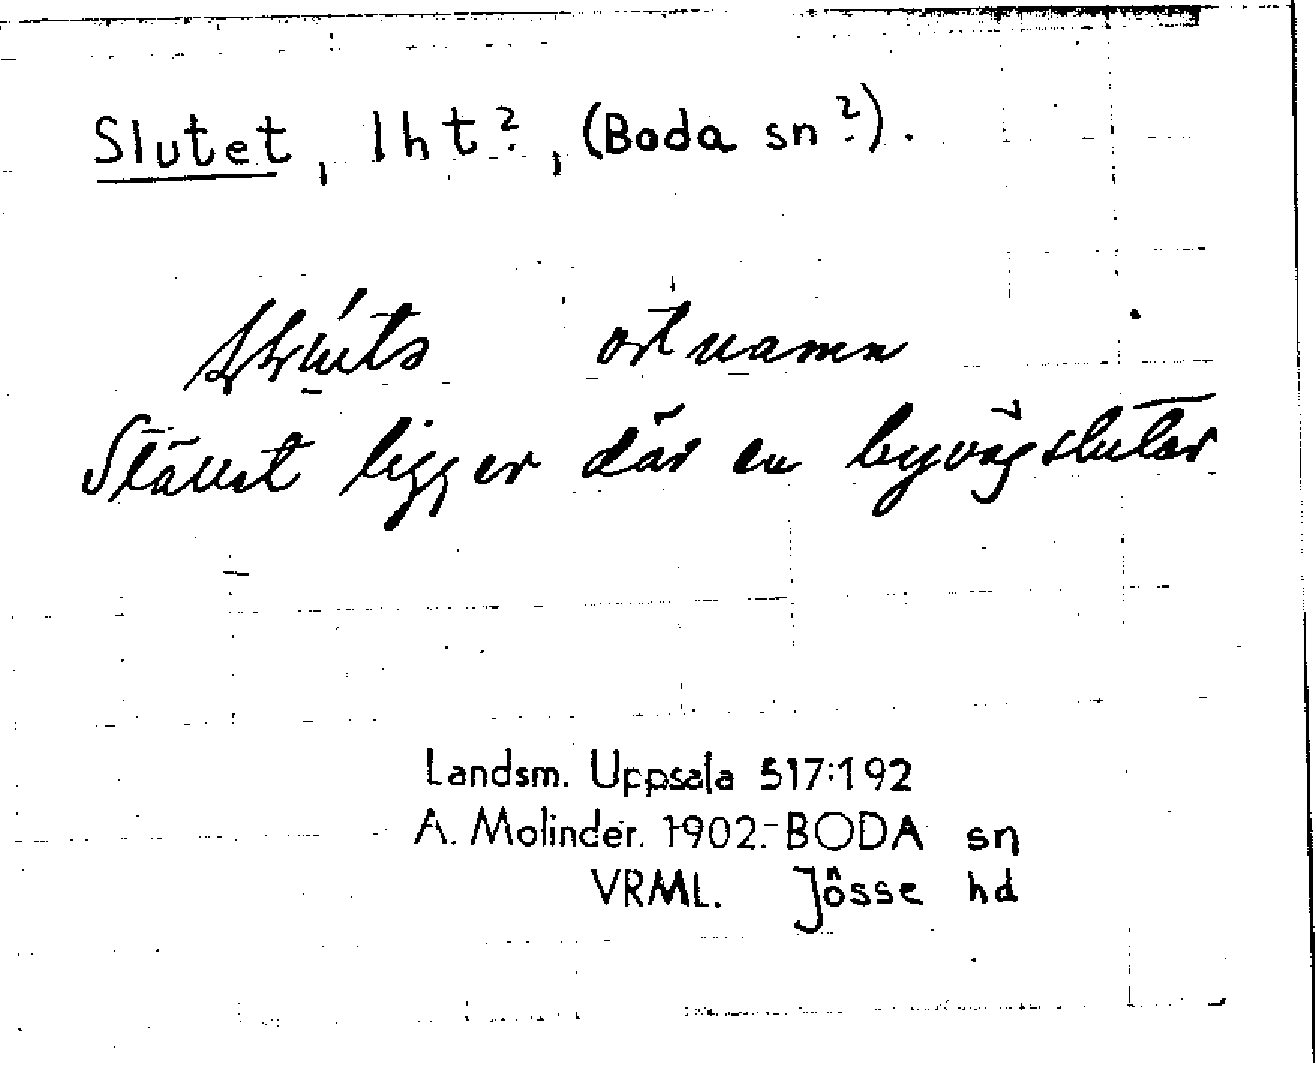 Slutet, lht?, (Boda sn?).
ortnamn
Stället ligger där en byväg slutar
Landsm. Uppsala 517:192
A. Molinder. 1902.-BODA sn
VRML. Jösse hd